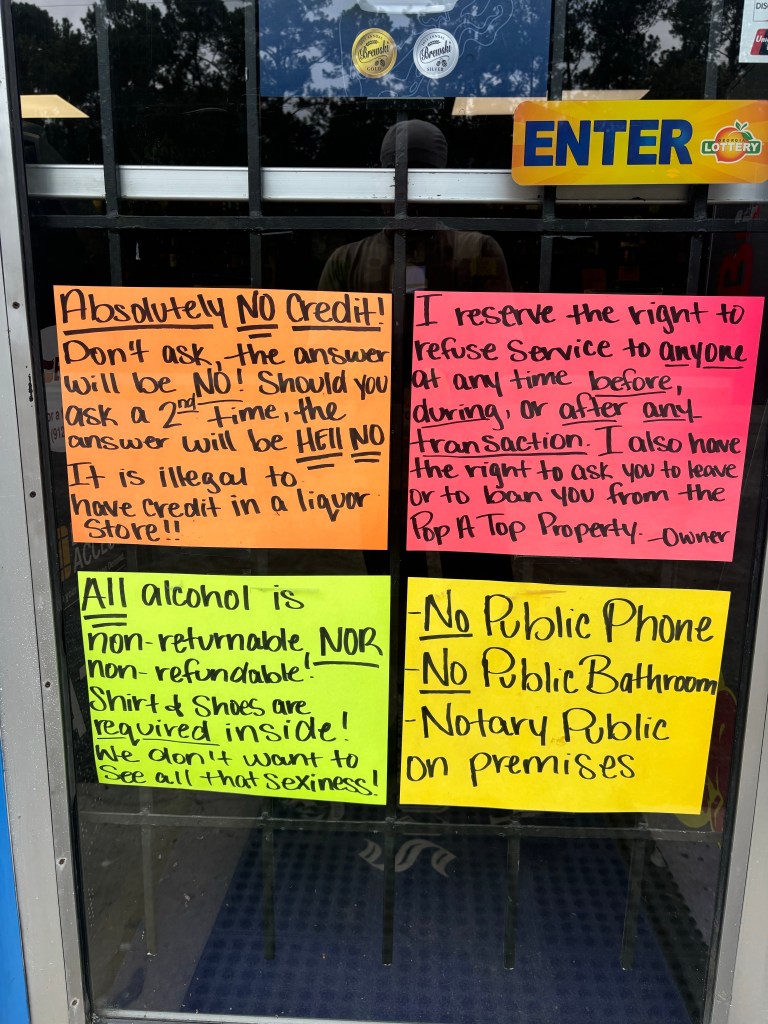 Brewski
GOLD
Brewski
SILVER
ENTER
GEORGIA
LOTTERY
Absolutely NO Credit!
Don't ask, the answer
will be NO! Should you
ask a 2nd time, the
answer will be HEll NO
It is illegal to
have credit in a liquor
Store!!
I reserve the right to
refuse service to anyone
at any time before,
during, or after any
transaction. I also have
the right to ask you to leave
or to ban you from the
Pop A Top Property. -Owner
All alcohol is
non-returnable NOR
non-refundable!
Shirt & Shoes are
required inside!
We don't want to
see all that sexiness!
-No Public Phone
-No Public Bathroom
-Notary Public
on premises